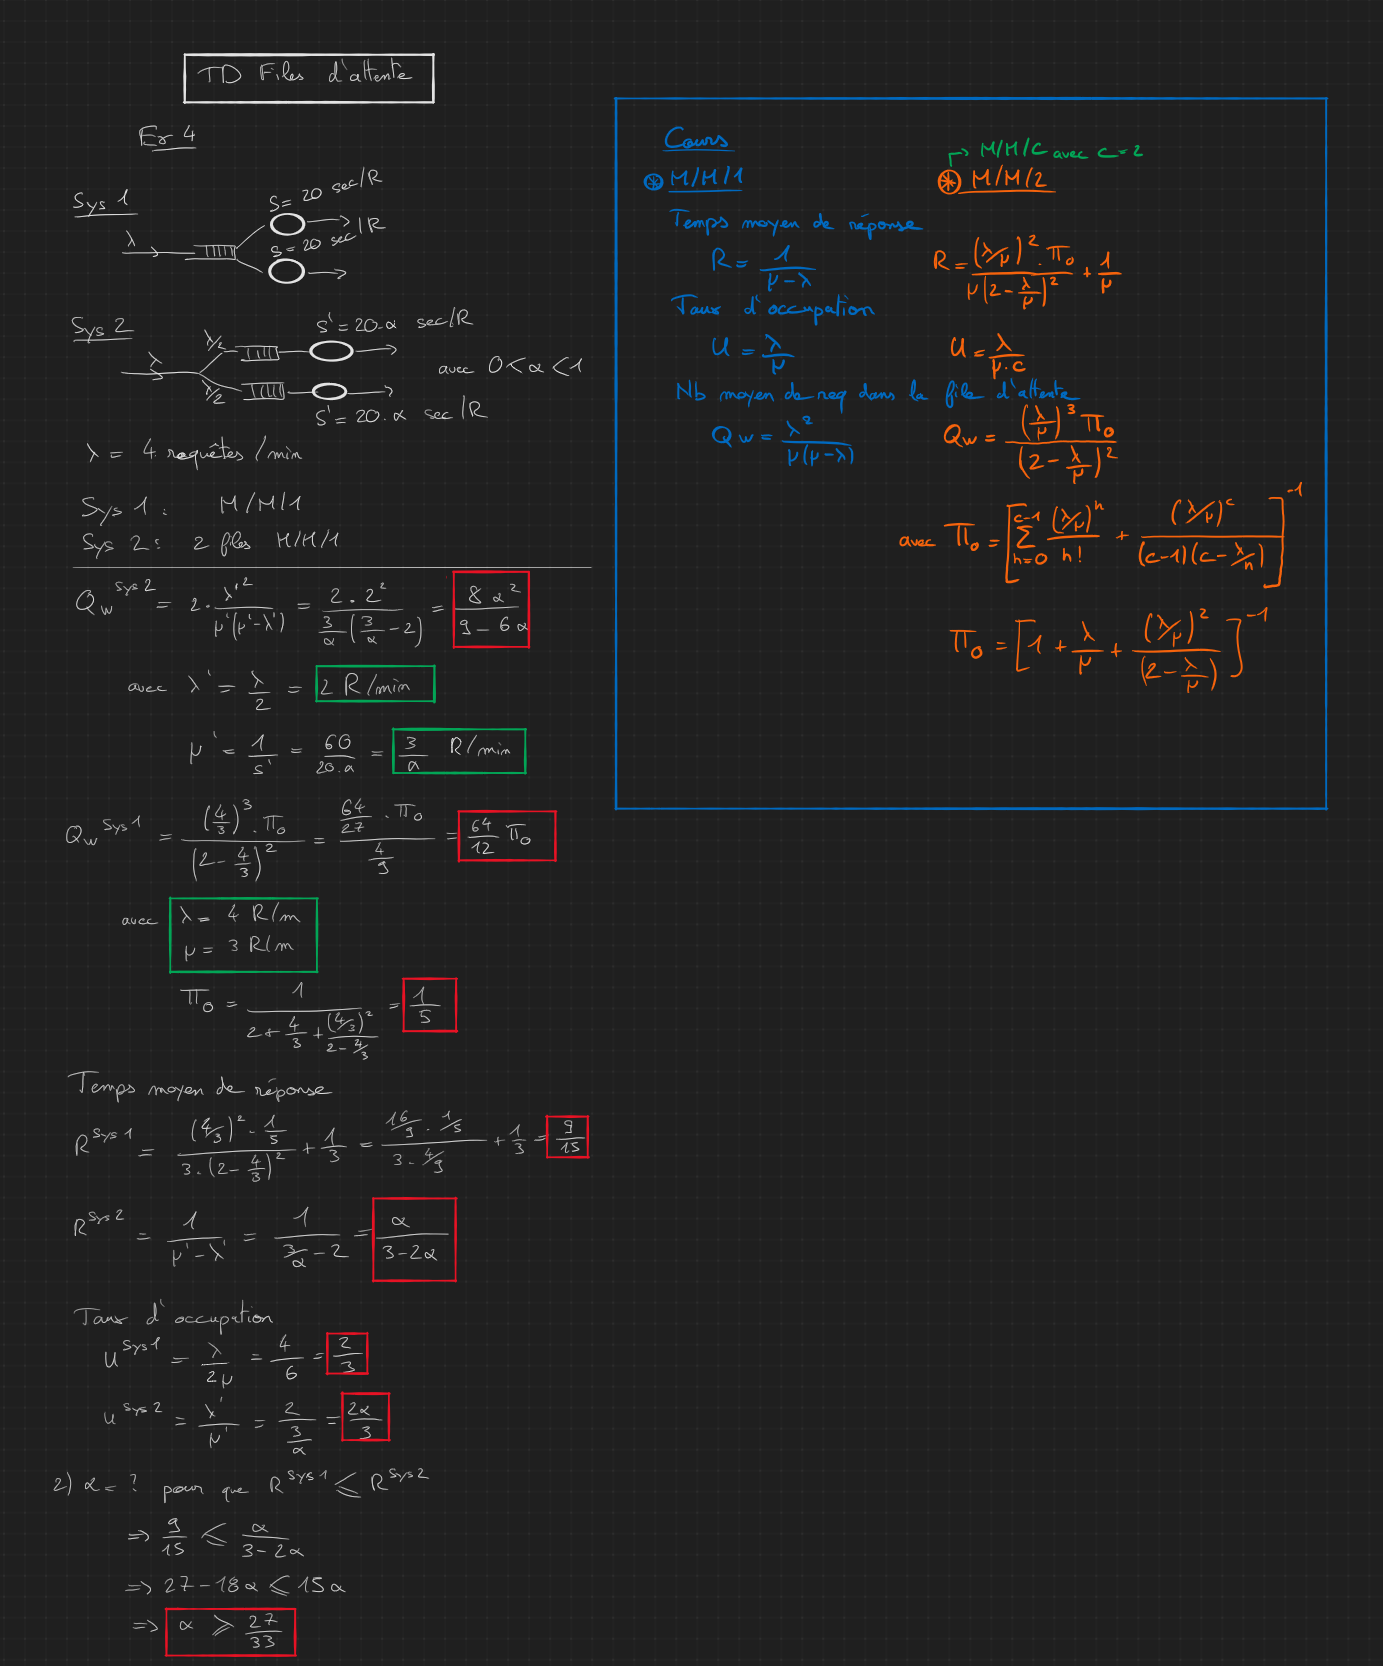 TD Files d'attente
Ex 4
Sys 1
S = 20 sec/R
λ
S = 20 sec/R
Sys 2
S' = 20.α sec/R
λ/2
λ
avec 0 < α < 1
λ/2
S' = 20.α sec/R
λ = 4 requêtes/min
Sys 1 : M/M/1
Sys 2 : 2 files M/M/1
Qw^Sys2 = 2 . λ'²/(μ'(μ'-λ')) = 2 . 2²/(3/α (3/α - 2)) = 8α²/(9 - 6α)
avec λ' = λ/2 = 2 R/min
μ' = 1/s' = 60/(20.α) = 3/α R/min
Qw^Sys1 = (4/3)³ . Π₀/(2 - 4/3)² = (64/27 . Π₀)/(4/9) = 64/12 Π₀
avec λ = 4 R/m
μ = 3 R/m
Π₀ = 1/(2 + 4/3 + (4/3)²/(2 - 4/3)) = 1/5
Temps moyen de réponse
R^Sys1 = ((4/3)² . 1/5)/(3 . (2 - 4/3)²) + 1/3 = (16/9 . 1/5)/(3 . 4/9) + 1/3 = 9/15
R^Sys2 = 1/(μ' - λ') = 1/(3/α - 2) = α/(3 - 2α)
Taux d'occupation
U^Sys1 = λ/2μ = 4/6 = 2/3
U^Sys2 = λ'/μ' = 2/(3/α) = 2α/3
2) α = ? pour que R^Sys1 ⩽ R^Sys2
=> 9/15 ⩽ α/(3 - 2α)
=> 27 - 18α ⩽ 15α
=> α ⩾ 27/33
Cours
M/M/1
Temps moyen de réponse
R = 1/(μ - λ)
Taux d'occupation
U = λ/μ
Nb moyen de req dans la file d'attente
Qw = λ²/(μ(μ-λ))
M/M/C avec C = 2
M/M/2
R = ((λ/μ)² . Π₀)/(μ(2 - λ/μ)²) + 1/μ
U = λ/(μ.c)
Qw = ((λ/μ)³ Π₀)/(2 - λ/μ)²
avec Π₀ = [Σ_{n=0}^{c-1} (λ/μ)^n/n! + (λ/μ)^c/((c-1)(c - λ/n))]^-1
Π₀ = [1 + λ/μ + (λ/μ)²/(2 - λ/μ)]^-1